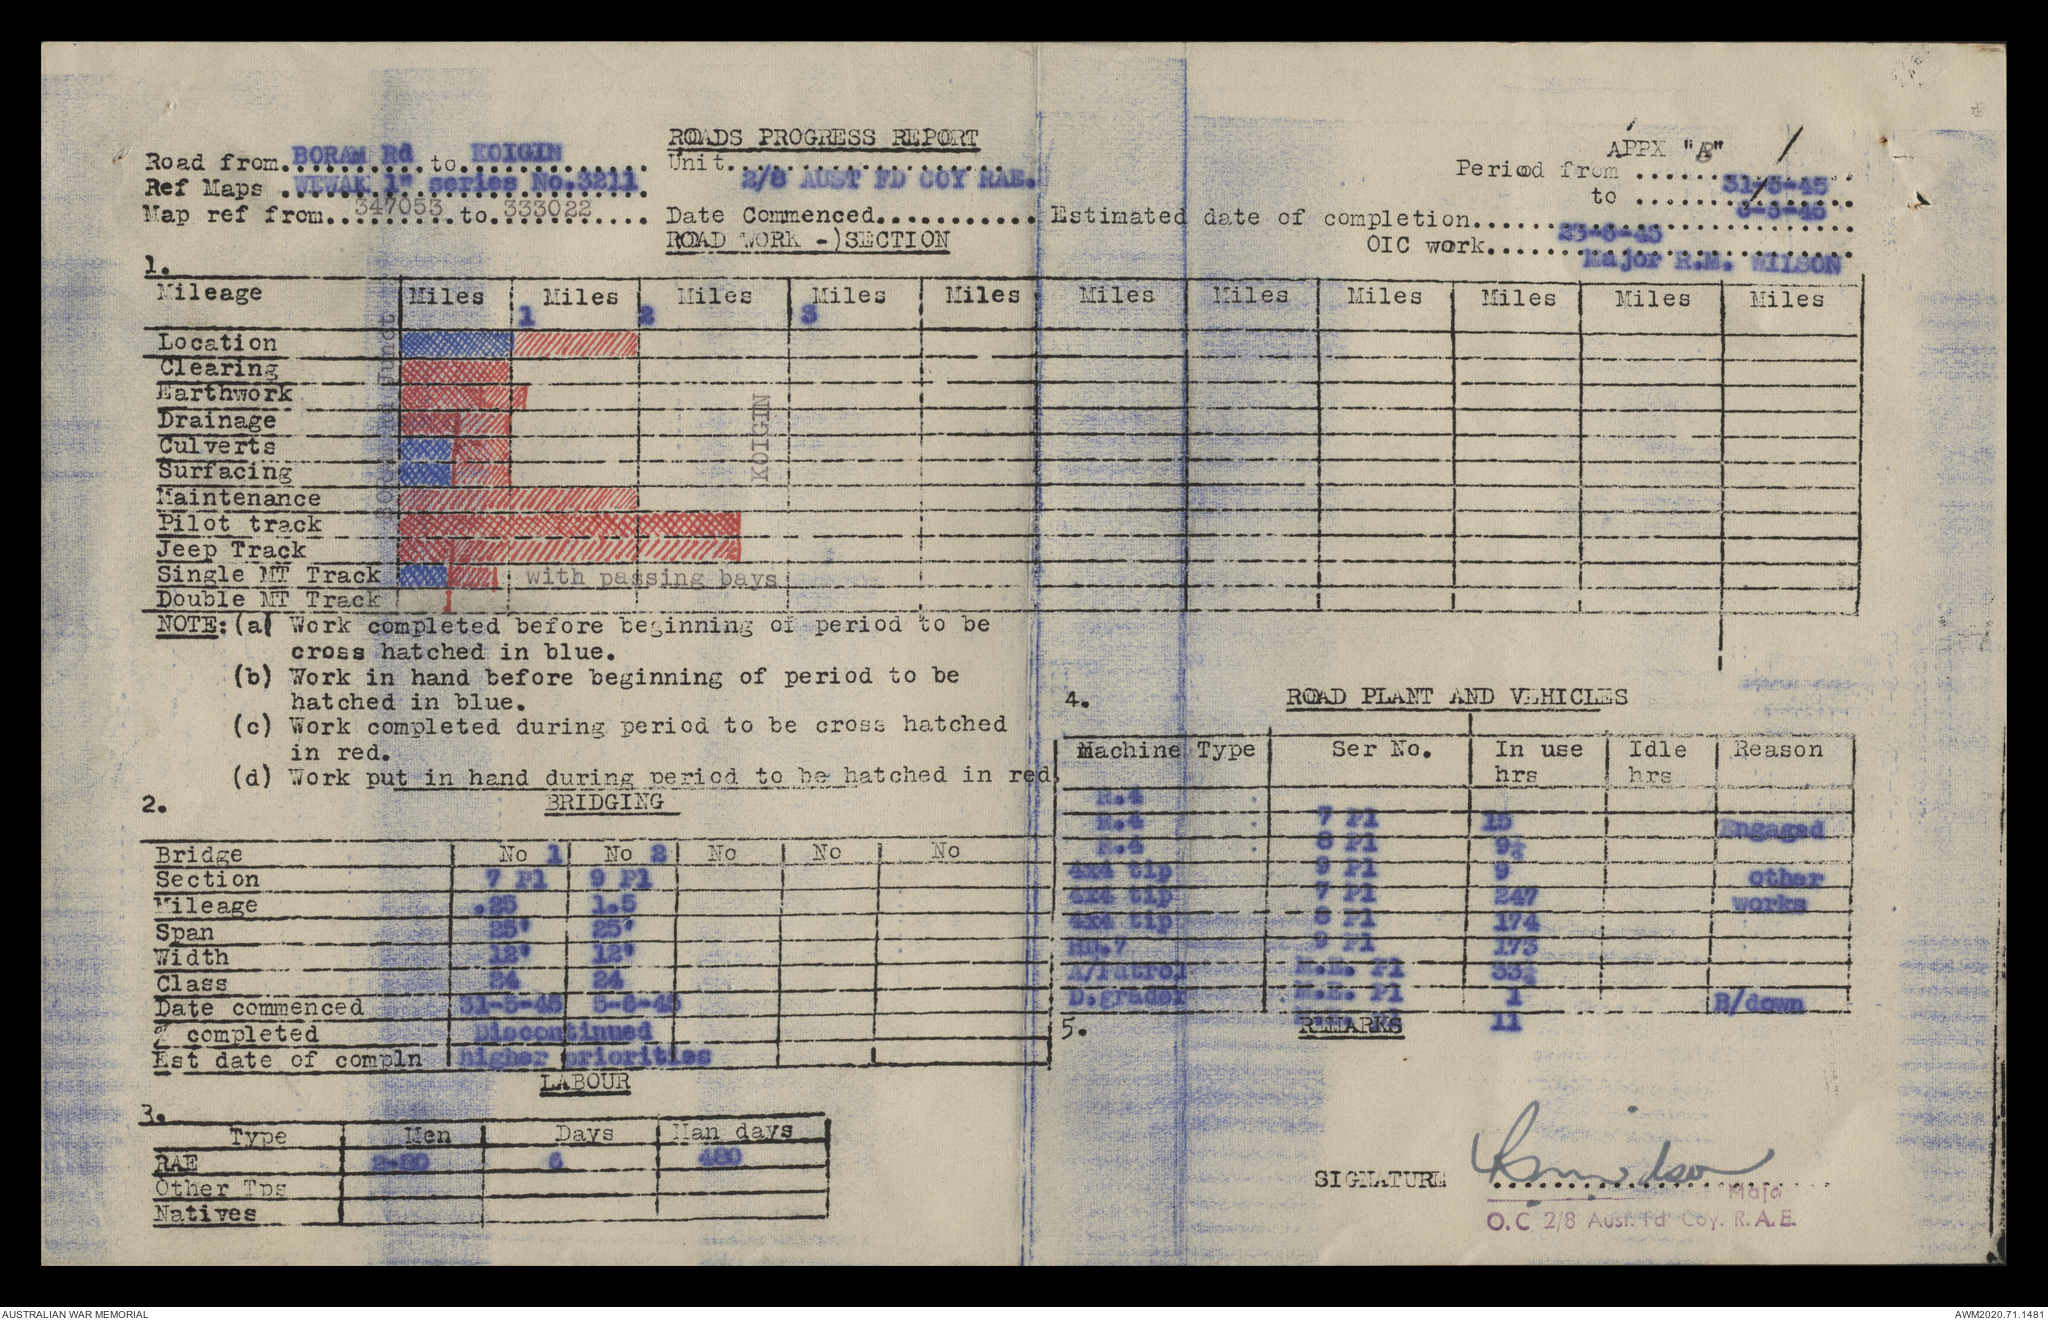 ROADS PROGRESS REPORT
APPX "B"
Road from BORAM Rd to KOIGIN
Unit 2/8 AUST FD COY RAE.
Period from 31-5-45
Ref Maps WEWAK 1" series No.3211
to 6-6-45
Map ref from 347053 to 333022
Date Commenced
Estimated date of completion 25-6-45
ROAD WORK -)SECTION
OIC work Major R.M. WILSON
1.
Mileage Miles Miles Miles Miles Miles Miles Miles Miles Miles Miles Miles
1 2 3
Location
Clearing
Earthwork
Drainage
Culverts
Surfacing
Maintenance
Pilot track
Jeep Track
Single MT Track with passing bays
Double MT Track
BORAM Rd Junct
KOIGIN
NOTE: (a) Work completed before beginning of period to be
cross hatched in blue.
(b) Work in hand before beginning of period to be
hatched in blue.
(c) Work completed during period to be cross hatched
in red.
(d) Work put in hand during period to be hatched in red
2. BRIDGING
Bridge No 1 No 2 No No No
Section 7 Pl 9 Pl
Mileage .25 1.5
Span 25' 25'
Width 12' 12'
Class 24 24
Date commenced 31-5-45 5-6-45
% completed Discontinued
Est date of compln higher priorities
LABOUR
3.
Type Men Days Man days
RAE 2-80 6 480
Other Tps
Natives
4. ROAD PLANT AND VEHICLES
Machine Type Ser No. In use hrs Idle hrs Reason
R.4 7 Pl 15 Engaged
R.4 8 Pl 9½
R.4 9 Pl 9 other
4x4 tip 7 Pl 247 works
4x4 tip 8 Pl 174
4x4 tip 9 Pl 173
HD.7 M.E. Pl 33½
A/Patrol M.E. Pl 1 B/down
D.grader 11
5. REMARKS
SIGNATURE
Maj
O.C 2/8 Aust. Fd Coy. R.A.E.
AUSTRALIAN WAR MEMORIAL
AWM2020.71.1481